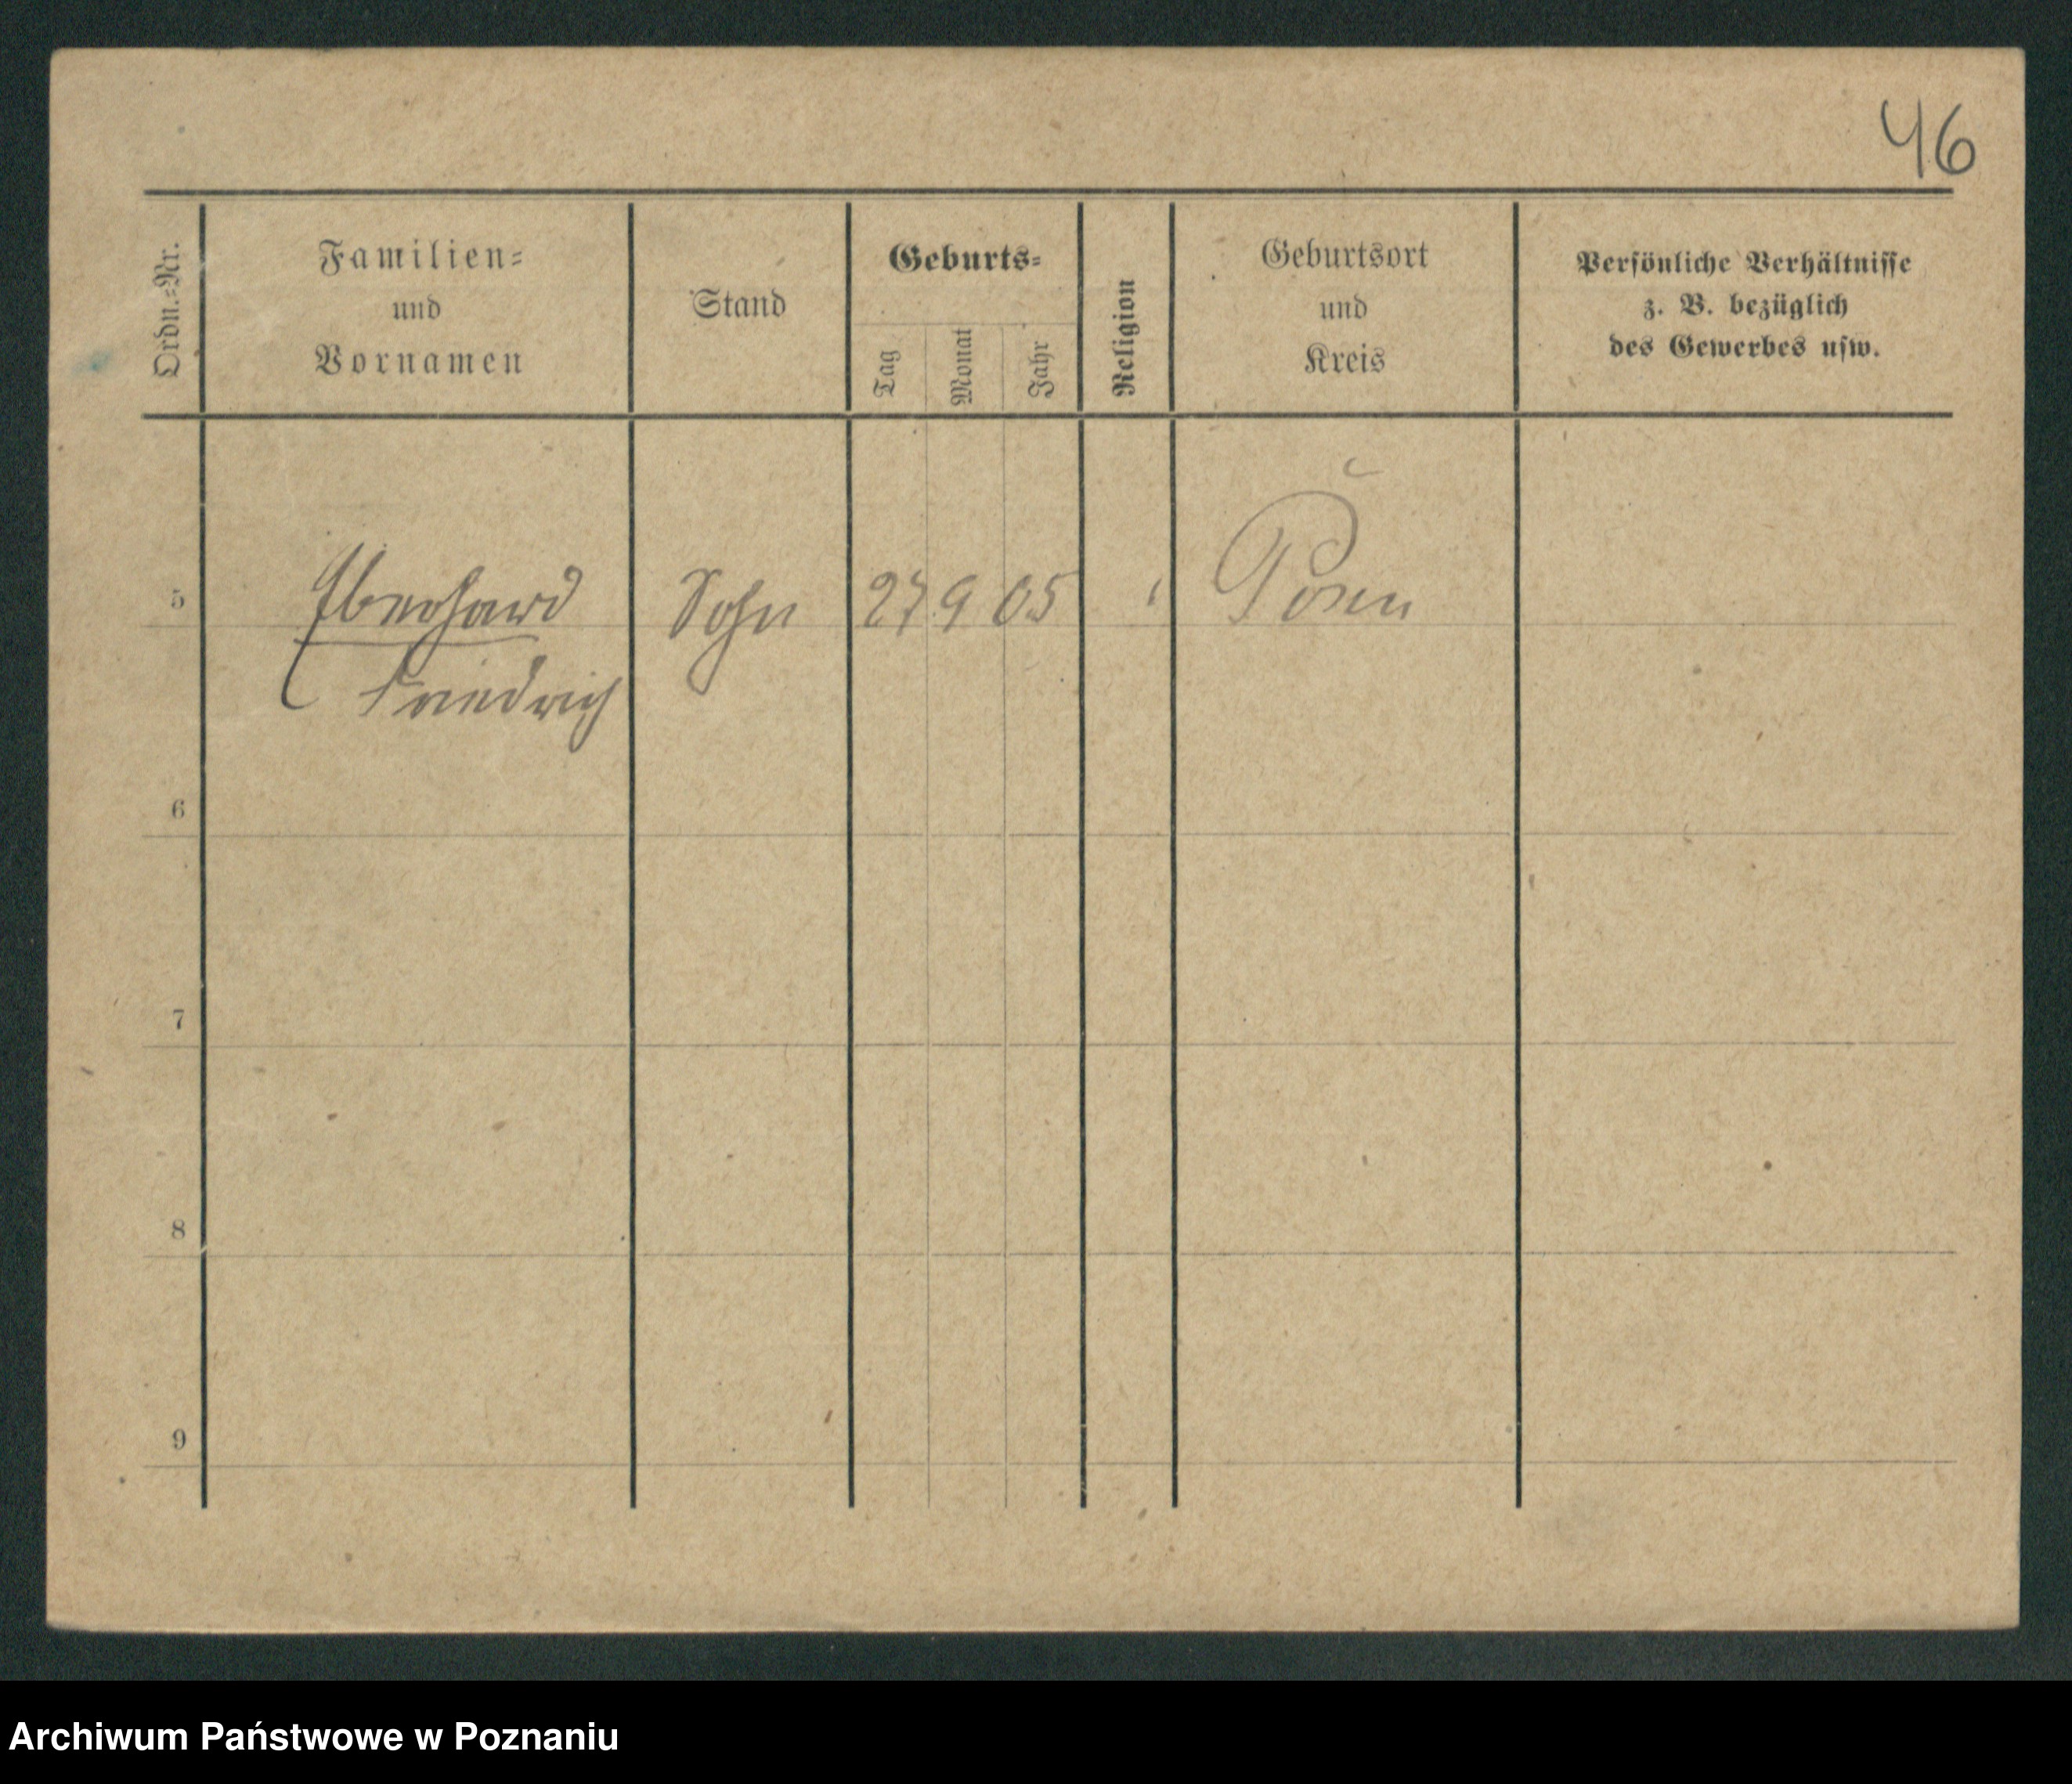 46
Ordn.=Nr.
Familien=
und
Vornamen
Stand
Geburts=
Tag
Monat
Jahr
Religion
Geburtsort
und
Kreis
Persönliche Verhältnisse
z. B. bezüglich
des Gewerbes usw.
5 Eberhard Sohn 27 9 05 Posen
Friedrich
6
7
8
9
Archiwum Państwowe w Poznaniu